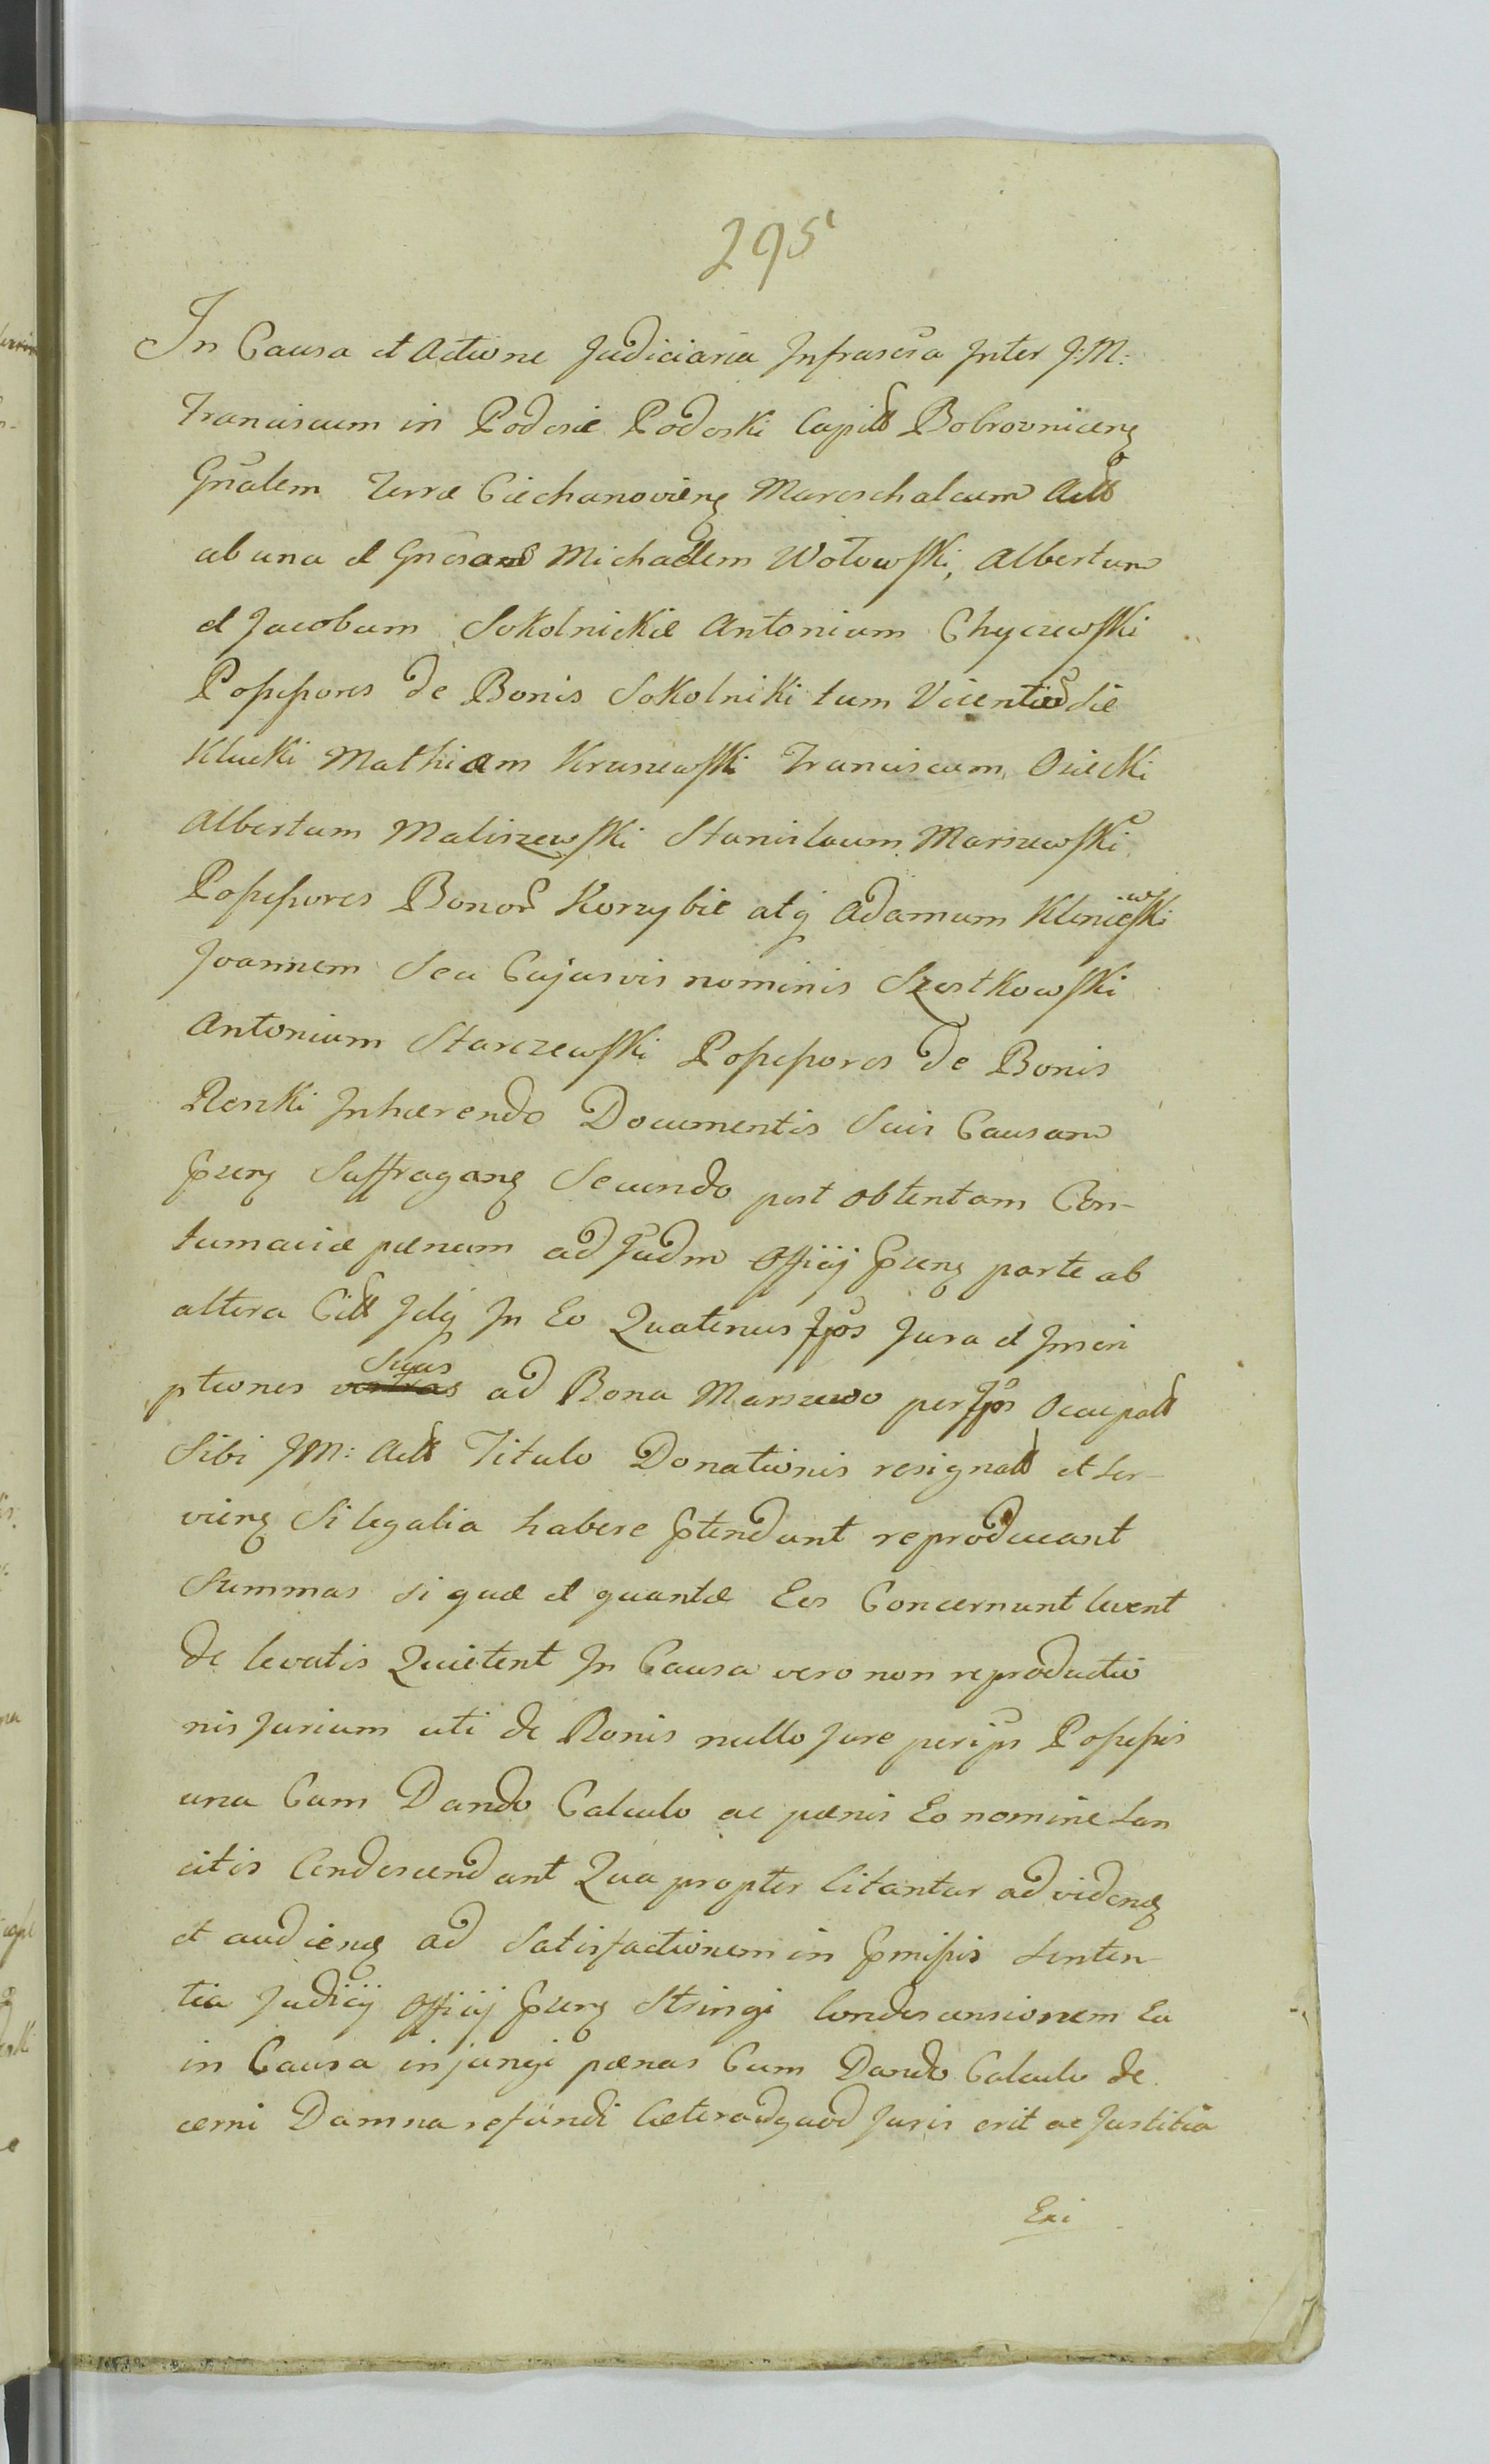 295
In Causa et Actione Judiciaria Infrascra Inter J: M:
Franciscum in Podosie Podoski Capitt Bobrovniceng
Gnalem Terræ Ciechanovieng Mareschalcum Actt
ab una et Gnosas Michaelem Wołowski, Albertum
et Jacobum Sokolnickie Antonium Chyczewski
Possessores de Bonis Sokolniki tum Vicentium Sie
Klucki Mathiam Kruszewski Franciscum Osiecki
Albertum Maliszewski Stanislaum Marszewski
Possessores Bonor Korzybie atq Adamum Kliniewski
Joannem Seu Cujusvis nominis Szostkowski
Antonium Starczewski Possessores de Bonis
Reszki Inhærendo Documentis Suis Causam
pseng Suffragang Secundo post obtentam Con-
tumaciæ pænam ad Judm Officij pseng parte ab
altera Citt Idq In Eo Quatenus Ipos Jura et Inscri
ptiones vestras Suas ad Bona Marszewo per Ipos Occupatt
Sibi JM: Actt Titulo Donationis resignatt et Ser-
vieng Si legalia habere ptendunt reproducant
Summas si quæ et quantæ Eos Concernunt levent
de levatis Quietent In Causa vero non reproductio
nis Jurium uti de Bonis nullo Jure per ips Possessis
una Cum Dando Calculo ac pænis Eo nomine San
citis Condescendant Qua propter Citantur ad videng
et audieng ad Satisfactionem in pmissis Senten-
tia Judicij Officij pseng Stringi Condescensionem Ea
in Causa injungi pænas Cum Dando Calculo de
cerni Damna refundi Cætera dq uod Juris erit ac Justitia
Exi